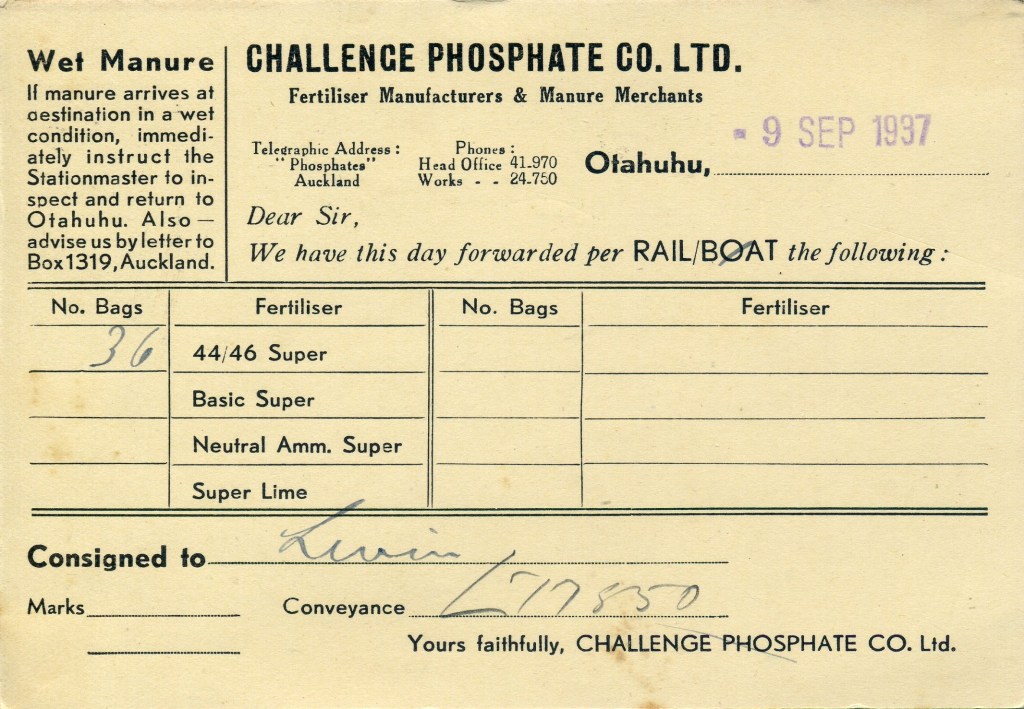 Wet Manure
If manure arrives at
destination in a wet
condition, immedi-
ately instruct the
Stationmaster to in-
spect and return to
Otahuhu. Also —
advise us by letter to
Box 1319, Auckland.
CHALLENGE PHOSPHATE CO. LTD.
Fertiliser Manufacturers & Manure Merchants
Telegraphic Address :
"Phosphates"
Auckland
Phones :
Head Office 41-970
Works - - 24-750
Otahuhu, - 9 SEP 1937
Dear Sir,
We have this day forwarded per RAIL/BOAT the following :
No. Bags Fertiliser No. Bags Fertiliser
36 44/46 Super
Basic Super
Neutral Amm. Super
Super Lime
Consigned to Levin
Marks Conveyance L 17850
Yours faithfully, CHALLENGE PHOSPHATE CO. Ltd.